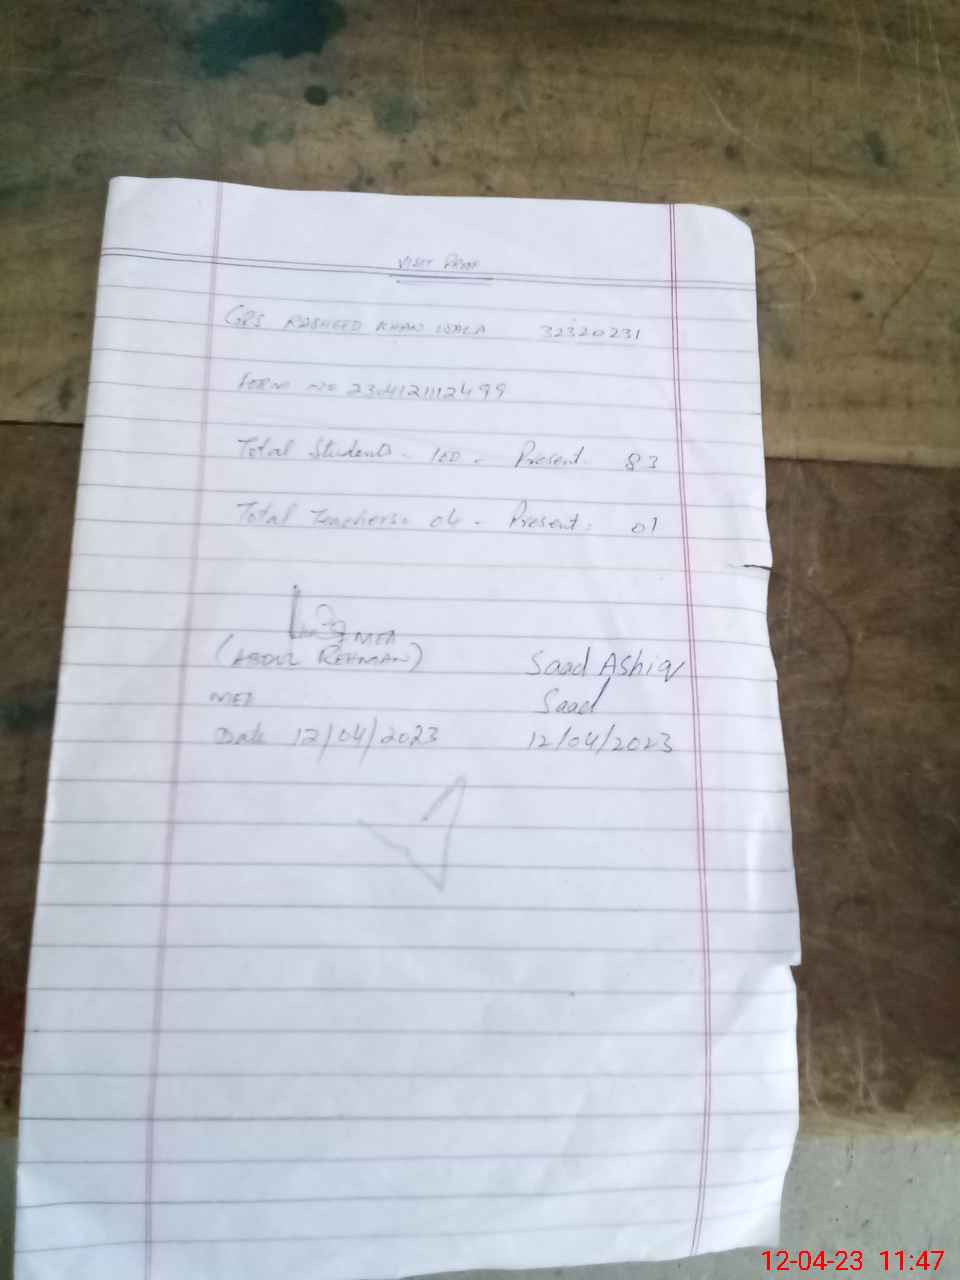 VISIT PROOF
GPS RASHEED KHAN WALA 32320231
FORM NO 2304121112499
Total Students - 100 - Present. 83
Total Teachers: 04 - Present: 01
MEA
(ABDUL REHMAN) Saad Ashiq
Saad
Date 12/04/2023 12/04/2023
12-04-23 11:47